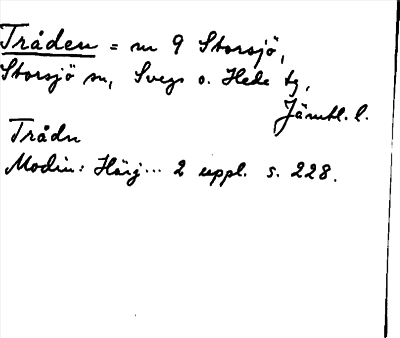 Tråden = nr 9 Storsjö,
Storsjö sn, Svegs o. Hede tg,
Jämtl. l.
Trådn
Modin: Härj... 2 uppl. s. 228.